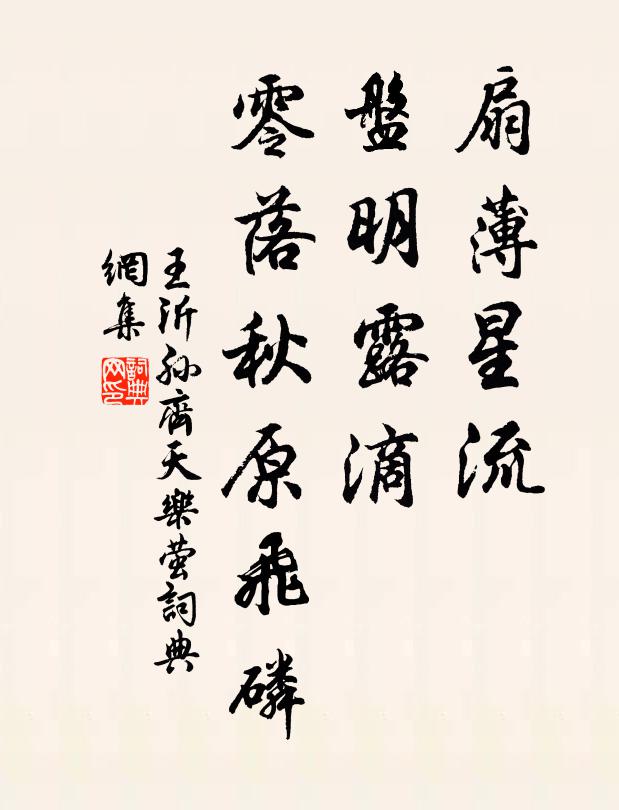 扇薄星流
盤明露滴
零落秋原飛磷
王沂孫齊天樂螢詞典
網集
詞典
网印